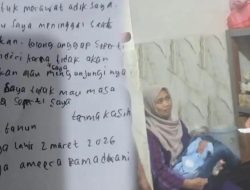 tuk merawat adik saya.
saya meninggal saat
kan. tolong anggap seperti
ndiri karna saya tidak akan
kan atau mengunjungi nya
Saya tidak mau masa
seperti saya
terima kasih
tahun
lahir 2 maret 2026
ameera ramadhani